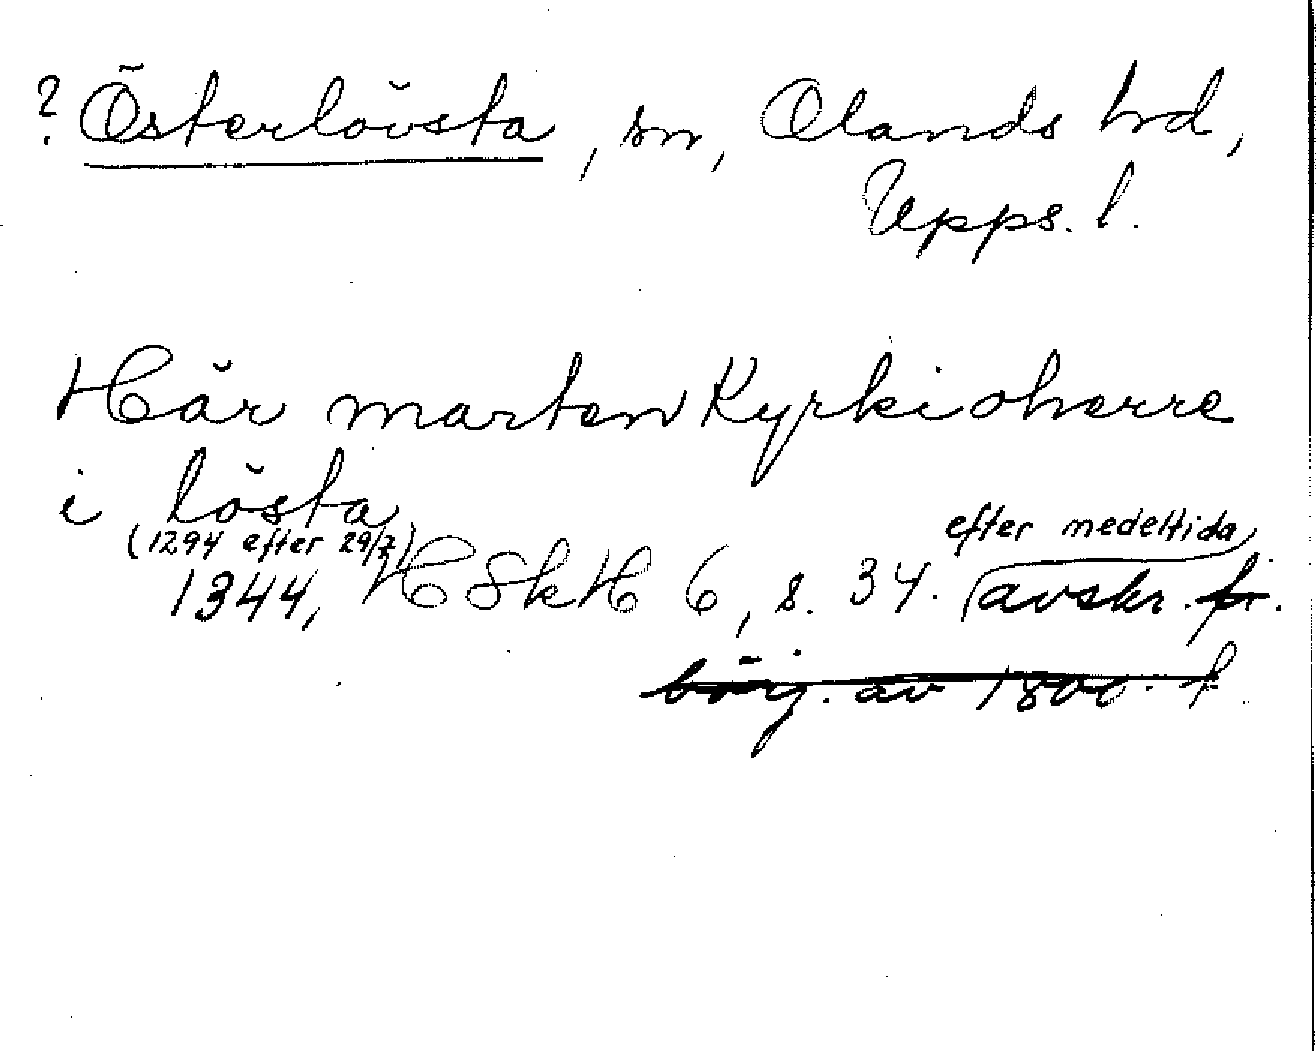 ? Österlövsta, sn, Olands hd,
Upps. l.
Här marten Kyrkioherre
i lösta
(1294 efter 29/7)
efter medeltida
1344, HSkH 6, s. 34. (avskr. fr.
börj. av 1800-t.